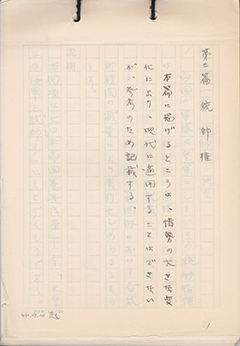 第二篇 統帥権
本篇に掲げるところは、情勢の大きな変
化により、現代に適用することはできない
が、参考のため記載する。
1